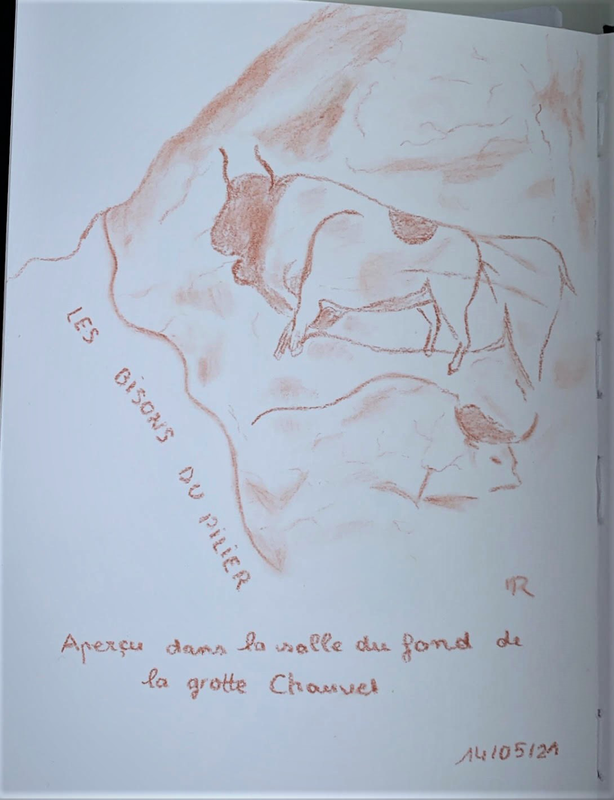 LES BISONS DU PILIER
R
Aperçu dans la salle du fond de
la grotte Chauvet
14/05/21